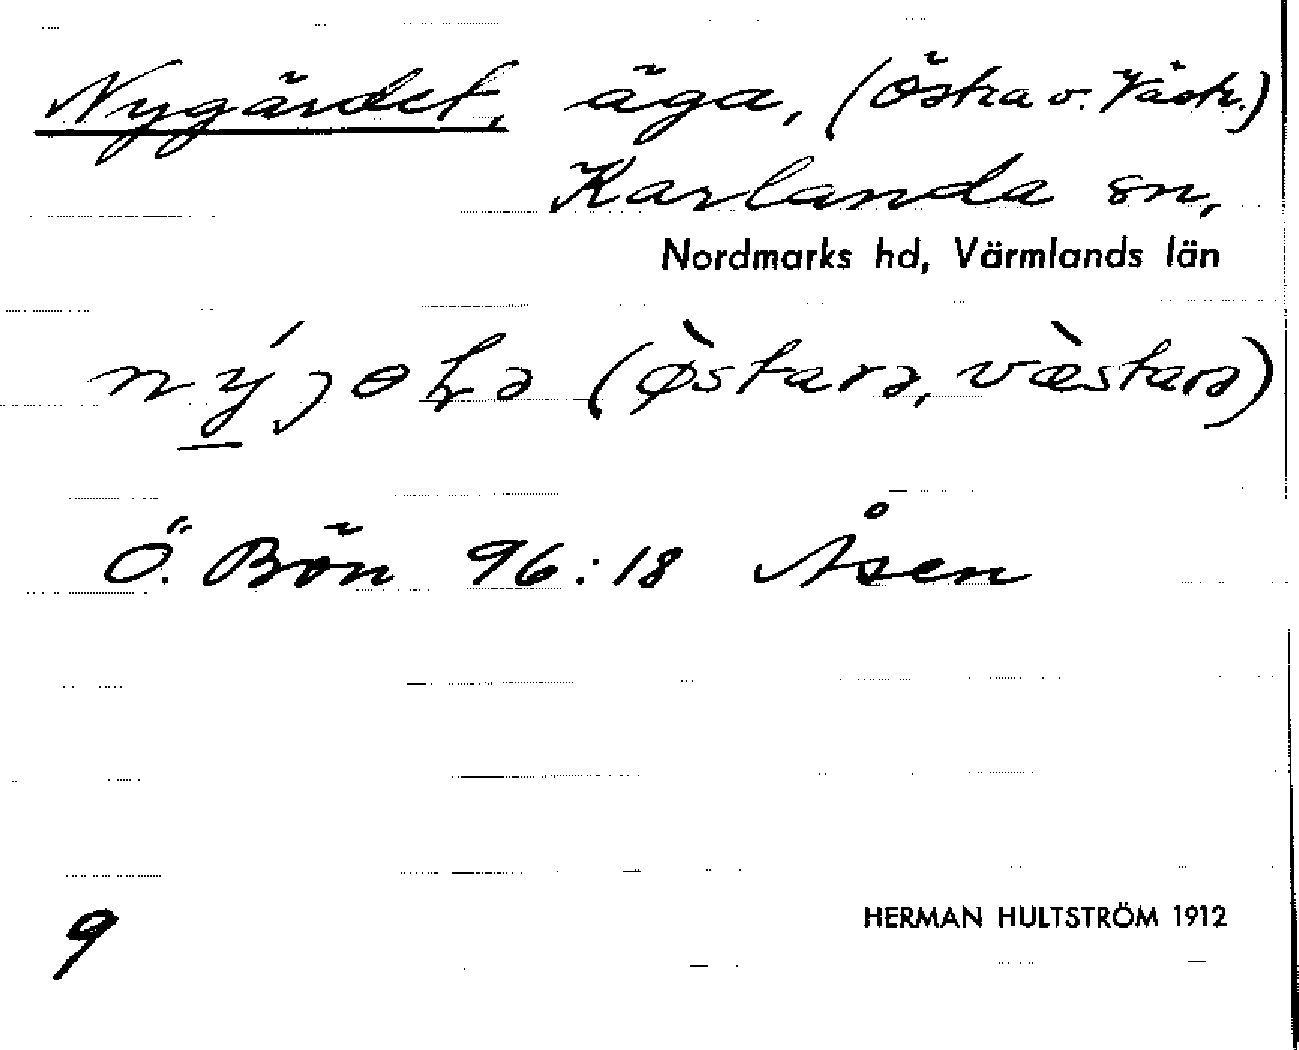 Nygärdet, äga, (Östra o. Västr.)
Karlanda sn,
Nordmarks hd, Värmlands län
(ø̀starə, væ̀starə)
Ö. Bön 96:18 Åsen
9
HERMAN HULTSTRÖM 1912